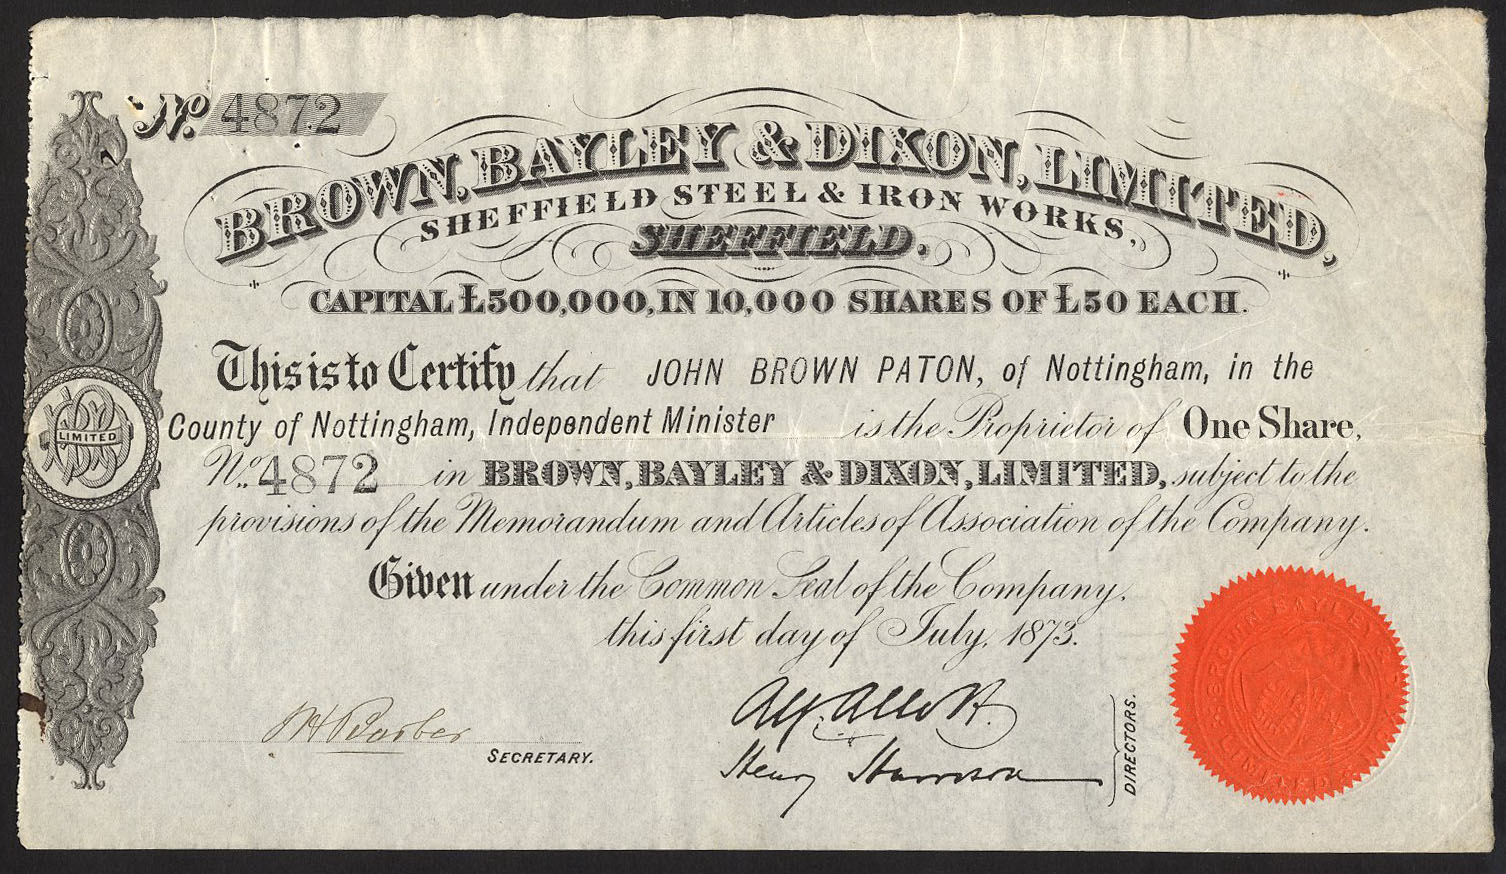 No. 4872
BROWN, BAYLEY & DIXON, LIMITED,
SHEFFIELD STEEL & IRON WORKS,
SHEFFIELD.
CAPITAL £500,000, IN 10,000 SHARES OF £50 EACH.
This is to Certify that JOHN BROWN PATON, of Nottingham, in the
County of Nottingham, Independent Minister is the Proprietor of One Share,
No. 4872 in BROWN, BAYLEY & DIXON, LIMITED, subject to the
provisions of the Memorandum and Articles of Association of the Company.
Given under the Common Seal of the Company,
this first day of July, 1873.
LIMITED
Alf. Allott.
Henry Harrison
DIRECTORS.
Barber
SECRETARY.
BROWN BAYLEY
LIMITED